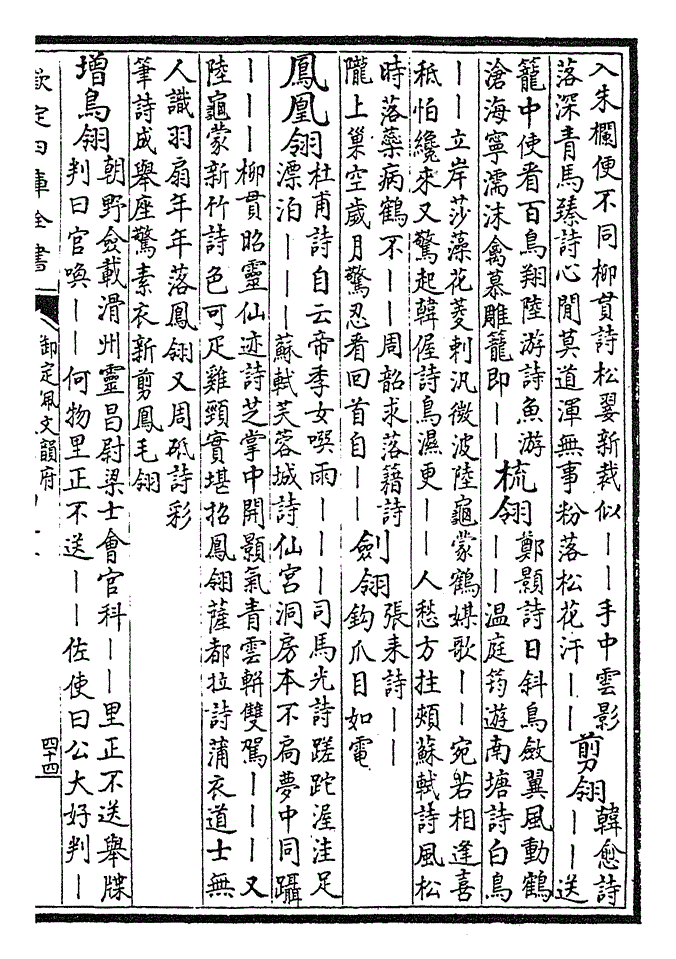 入朱欄便不同柳貫詩松翣新裁似｜｜手中雲影
落深青馬臻詩心閒莫道渾無事粉落松花汗｜｜
剪翎
韓愈詩
｜｜送
籠中使看百鳥翔陸游詩魚游
滄海寧濡沫禽慕雕籠即｜｜
梳翎
鄭顥詩日斜鳥斂翼風動鶴
｜｜温庭筠遊南塘詩白鳥
｜｜立岸莎藻花菱刺汎微波陸龜蒙鶴媒歌｜｜宛若相逢喜
秪怕纔來又驚起韓偓詩鳥濕更｜｜人愁方拄頰蘇軾詩風松
時落蘂病鶴不｜｜周韶求落籍詩
隴上巢空歲月驚忍看回首自｜｜
劍翎
張耒詩｜｜
鈎爪目如電
鳳凰翎
杜甫詩自云帝季女噀雨｜｜｜司馬光詩蹉跎渥洼足
漂泊｜｜｜蘇軾芙蓉城詩仙宮洞房本不扃夢中同躡
｜｜｜柳貫昭靈仙迹詩芝掌中開顥氣青雲軿雙駕｜｜｜又
陸龜蒙新竹詩色可疋雞頸實堪招鳳翎薩都拉詩蒲衣道士無
人識羽扇年年落鳳翎又周砥詩彩
筆詩成舉座驚素衣新剪鳳毛翎
增鳥翎
朝野僉載滑州靈昌尉梁士會官科｜｜里正不送舉牒
判曰官喚｜｜何物里正不送｜｜佐使曰公大好判｜
欽定四庫全書
御定佩文韻府
四十四